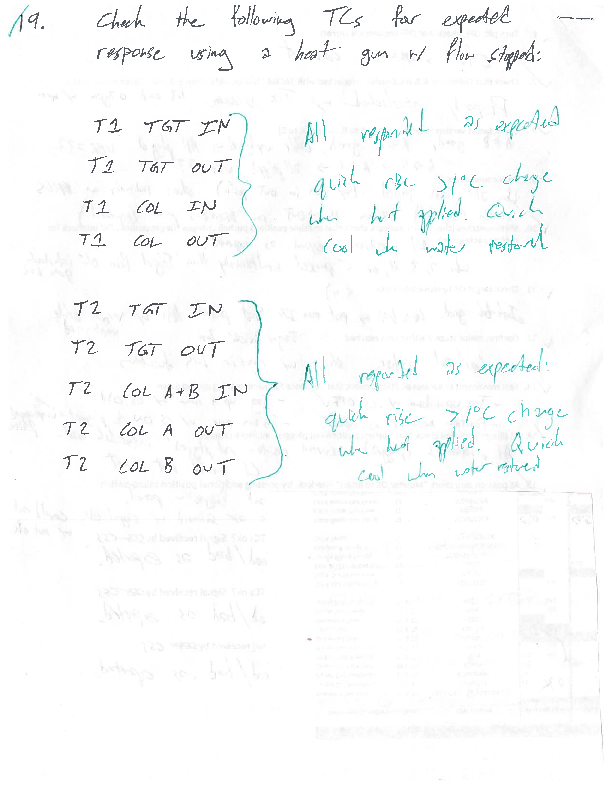 19. Check the following TCs for expected
response using a heat gun w/ flow stopped:
T1 TGT IN
T1 TGT OUT
T1 COL IN
T1 COL OUT
All responded as expected
quick rise >1°C change
when heat applied. Quick
cool when water restored
T2 TGT IN
T2 TGT OUT
T2 COL A+B IN
T2 COL A OUT
T2 COL B OUT
All responded as expected:
quick rise >1°C change
when heat applied. Quick
cool when water restored